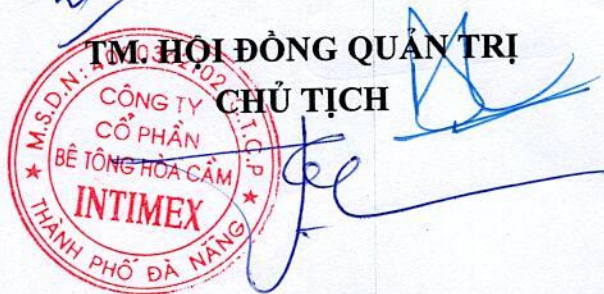 TM. HỘI ĐỒNG QUẢN TRỊ
CHỦ TỊCH
CÔNG TY
CỔ PHẦN
BÊ TÔNG HÒA CẦM
INTIMEX
THÀNH PHỐ ĐÀ NẴNG